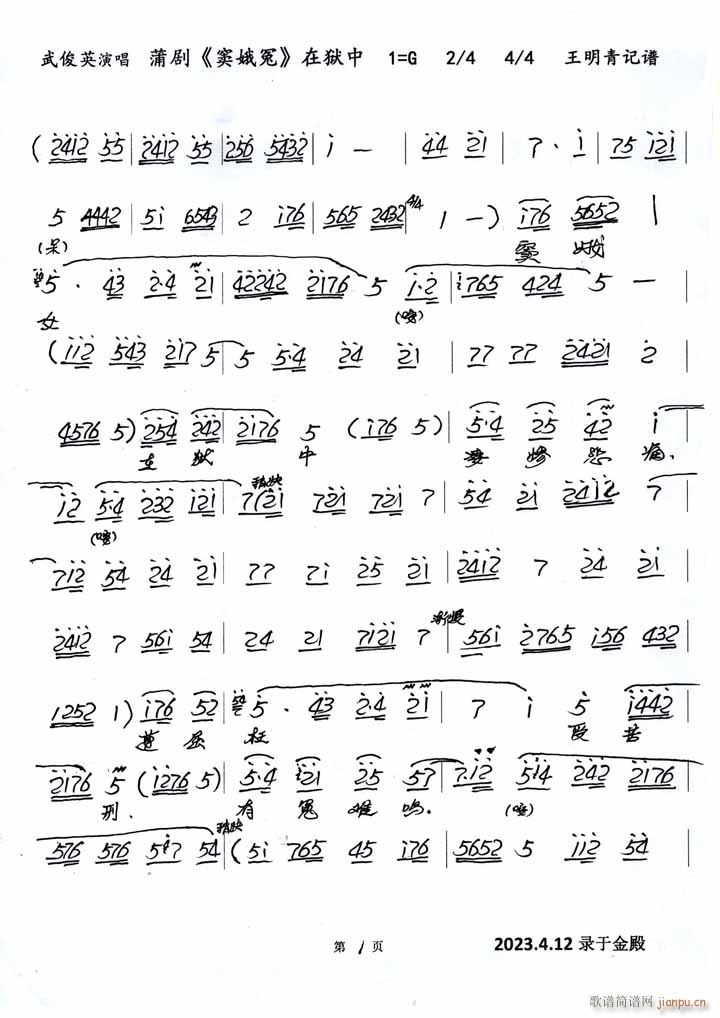 武俊英演唱 蒲剧《窦娥冤》在狱中 1=G 2/4 4/4 王明青记谱
( 2412 55 | 2412 55 | 256 5432 | i — | 44 21 | 7 · i | 75 i2i |
5 4442 | 5i 6543 | 2 i76 | 565 2432 | 4/4 1 — ) i76 5652 |
(呆) 窦 娥
5 · 43 2·4 21 | 42242 2176 5 i·2 | i765 424 5 — |
女
( ii2 543 217 5 | 5 5·4 24 21 | 77 777 2421 2 |
4576 5 ) 254 242 | 2176 5 ( i76 5 ) | 5·4 25 42 i |
在 狱 中 凄 惨 悲 痛、
i2 5·4 232 i2i | 7 ( 2i 72i 72i 7 | 54 21 24i2 7 |
稍快
7i2 54 24 21 | 77 7i i 25 21 | 2412 7 24 21 |
2412 7 56i 54 | 24 21 7i2i 7 | 56i 2765 i56 432 |
渐慢
1252 1 ) i76 52 | 5 · 43 2·4 2i | 7 i 5 i442 |
屈 枉 受 苦
2176 5 ( i276 5 ) | 5·4 21 25 57 | 7·i2 5i4 242 2176 |
刑. 有 冤 难 鸣.
576 576 5i7 54 | ( 5i 765 45 i76 | 5652 5 ii2 54 |
稍快
第 1 页
2023.4.12 录于金殿
歌谱简谱网
jianpu.cn